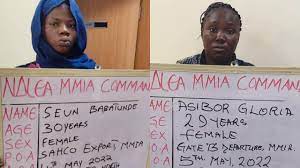 NDLEA MMIA COMMAND
NAME SEUN BABATUNDE
AGE 30 YEARS
SEX FEMALE
P.O.A SAHCO EXPORT MMIA
MAY 2022
NDLEA MMIA COMMAN
NAME ASIBOR GLORIA
AGE 29 YEARS
SEX FEMALE
P.O.A GATE B DEPARTURE, MMIA
D.O.A 5TH MAY, 2022